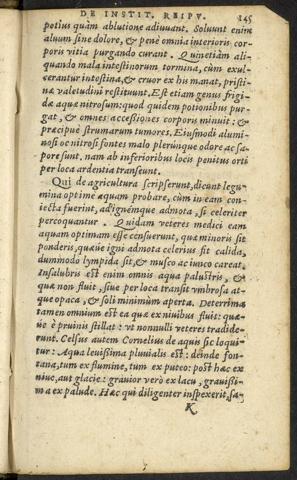 DE INSTIT. REIPV. 145
potius quàm ablutione adiuuant. Soluunt enim
aluum sine dolore, & penè omnia interioris cor-
poris vitia purgando curant. Quinetiàm ali-
quando mala intestinorum tormina, cùm exul-
cerantur intestina, & cruor ex his manat, pristi-
næ valetudini restituunt. Est etiam genus frigi-
dæ aquæ nitrosum: quod quidem potionibus pur-
gat, & omnes accessiones corporis minuit: &
præcipuè strumarum tumores. Eiusmodi alumi-
nosi ac nitrosi fontes malo plerunque odore ac sa-
pore sunt, nam ab inferioribus locis penitus orti
per loca ardentia transeunt.
Qui de agricultura scripserunt, dicunt legu-
mina optimè aquam probare, cùm in eam con-
iecta fuerint, ad ignémque admota, si celeriter
percoquantur. Quidam veteres medici eam
aquam optimam esse censuerunt, quæ minoris sit
ponderis, quæue igni admota celerius sit calida,
dummodo lympida sit, & musco ac iunco careat.
Insalubris est enim omnis aqua palustris, &
quæ non fluit, siue per loca transit vmbrosa at-
que opaca, & soli minimùm aperta. Deterrima
tamen omnium est ea quæ ex niuibus fluit: quæ-
ue è pruinis stillat: vt nonnulli veteres tradide-
runt. Celsus autem Cornelius de aquis sic loqui-
tur: Aqua leuissima pluuialis est: deinde fon-
tana, tum ex flumine, tum ex puteo: post hæc ex
niue, aut glacie: grauior verò ex lacu, grauissi-
ma ex palude. Hæc qui diligenter inspexerit, sa-
K